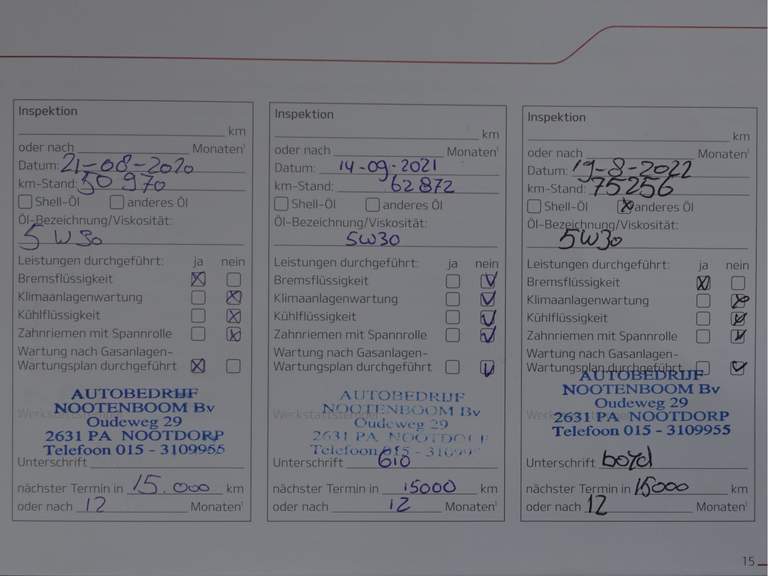 Inspektion
km
oder nach Monaten¹
Datum: 21-08-2020
km-Stand: 50 970
Shell-Öl anderes Öl
Öl-Bezeichnung/Viskosität:
5 W30
Leistungen durchgeführt: ja nein
Bremsflüssigkeit
Klimaanlagenwartung
Kühlflüssigkeit
Zahnriemen mit Spannrolle
Wartung nach Gasanlagen-
Wartungsplan durchgeführt
AUTOBEDRIJF
NOOTENBOOM Bv
Oudeweg 29
2631 PA NOOTDORP
Telefoon 015 - 3109955
Unterschrift
nächster Termin in 15.000 km
oder nach 12 Monaten¹
Inspektion
km
oder nach Monaten¹
Datum: 14-09-2021
km-Stand: 62872
Shell-Öl anderes Öl
Öl-Bezeichnung/Viskosität:
5W30
Leistungen durchgeführt: ja nein
Bremsflüssigkeit
Klimaanlagenwartung
Kühlflüssigkeit
Zahnriemen mit Spannrolle
Wartung nach Gasanlagen-
Wartungsplan durchgeführt
AUTOBEDRIJF
NOOTENBOOM Bv
Oudeweg 29
2631 PA NOOTDORP
Telefoon 015 - 31099
Unterschrift
nächster Termin in 15000 km
oder nach 12 Monaten¹
Inspektion
km
oder nach Monaten¹
Datum: 19-8-2022
km-Stand: 75256
Shell-Öl anderes Öl
Öl-Bezeichnung/Viskosität:
5W30
Leistungen durchgeführt: ja nein
Bremsflüssigkeit
Klimaanlagenwartung
Kühlflüssigkeit
Zahnriemen mit Spannrolle
Wartung nach Gasanlagen-
Wartungsplan durchgeführt
AUTOBEDRIJF
NOOTENBOOM Bv
Oudeweg 29
2631 PA NOOTDORP
Telefoon 015 - 3109955
Unterschrift
nächster Termin in 15000 km
oder nach 12 Monaten¹
15